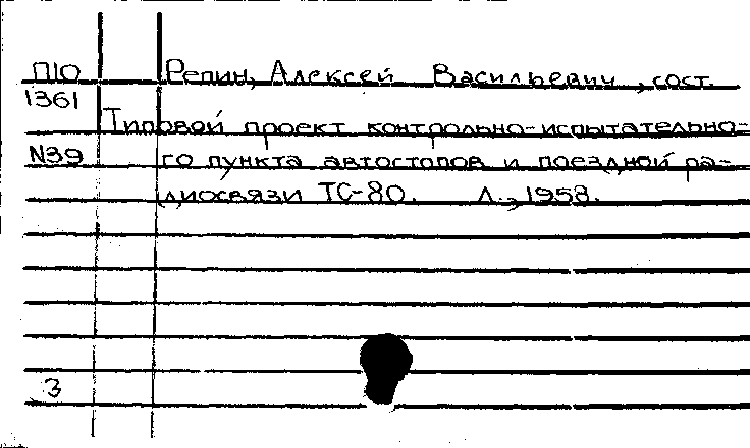 П10 Репин, Алексей Васильевич, сост.
1361
Типовой проект контрольно-испытательно-
N39 го пункта автостопов и поездной ра-
диосвязи ТС-80. Л., 1958.
3